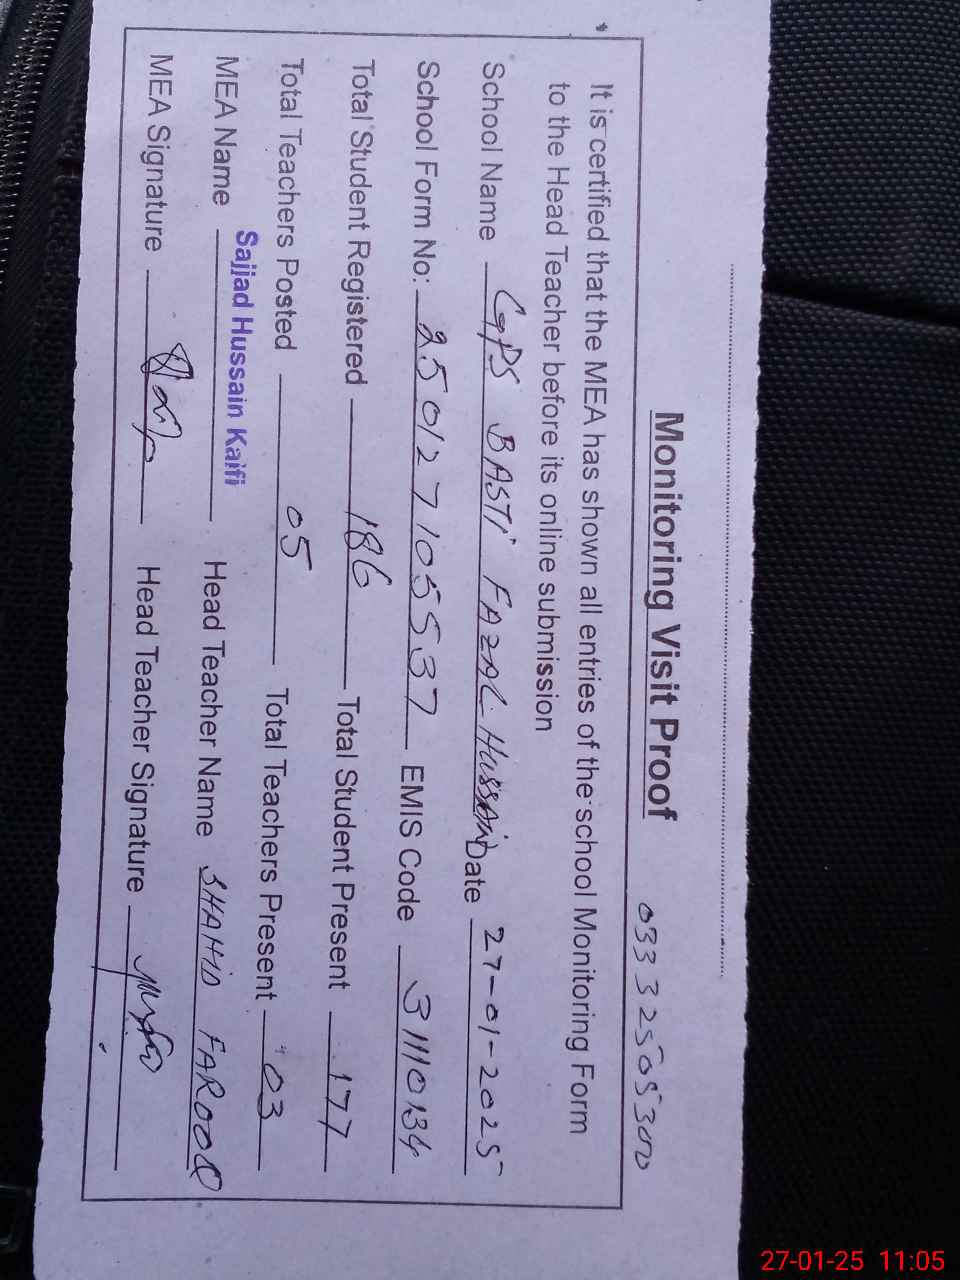 Monitoring Visit Proof 03332505300
It is certified that the MEA has shown all entries of the school Monitoring Form
to the Head Teacher before its online submission
School Name GPS BASTI FAZAL HUSSAIN Date 27-01-2025
School Form No: 250127105537 EMIS Code 31110134
Total Student Registered 186 Total Student Present 177
Total Teachers Posted 05 Total Teachers Present 03
MEA Name Sajjad Hussain Kaifi Head Teacher Name SHAHID FAROOQ
MEA Signature Head Teacher Signature
27-01-25 11:05